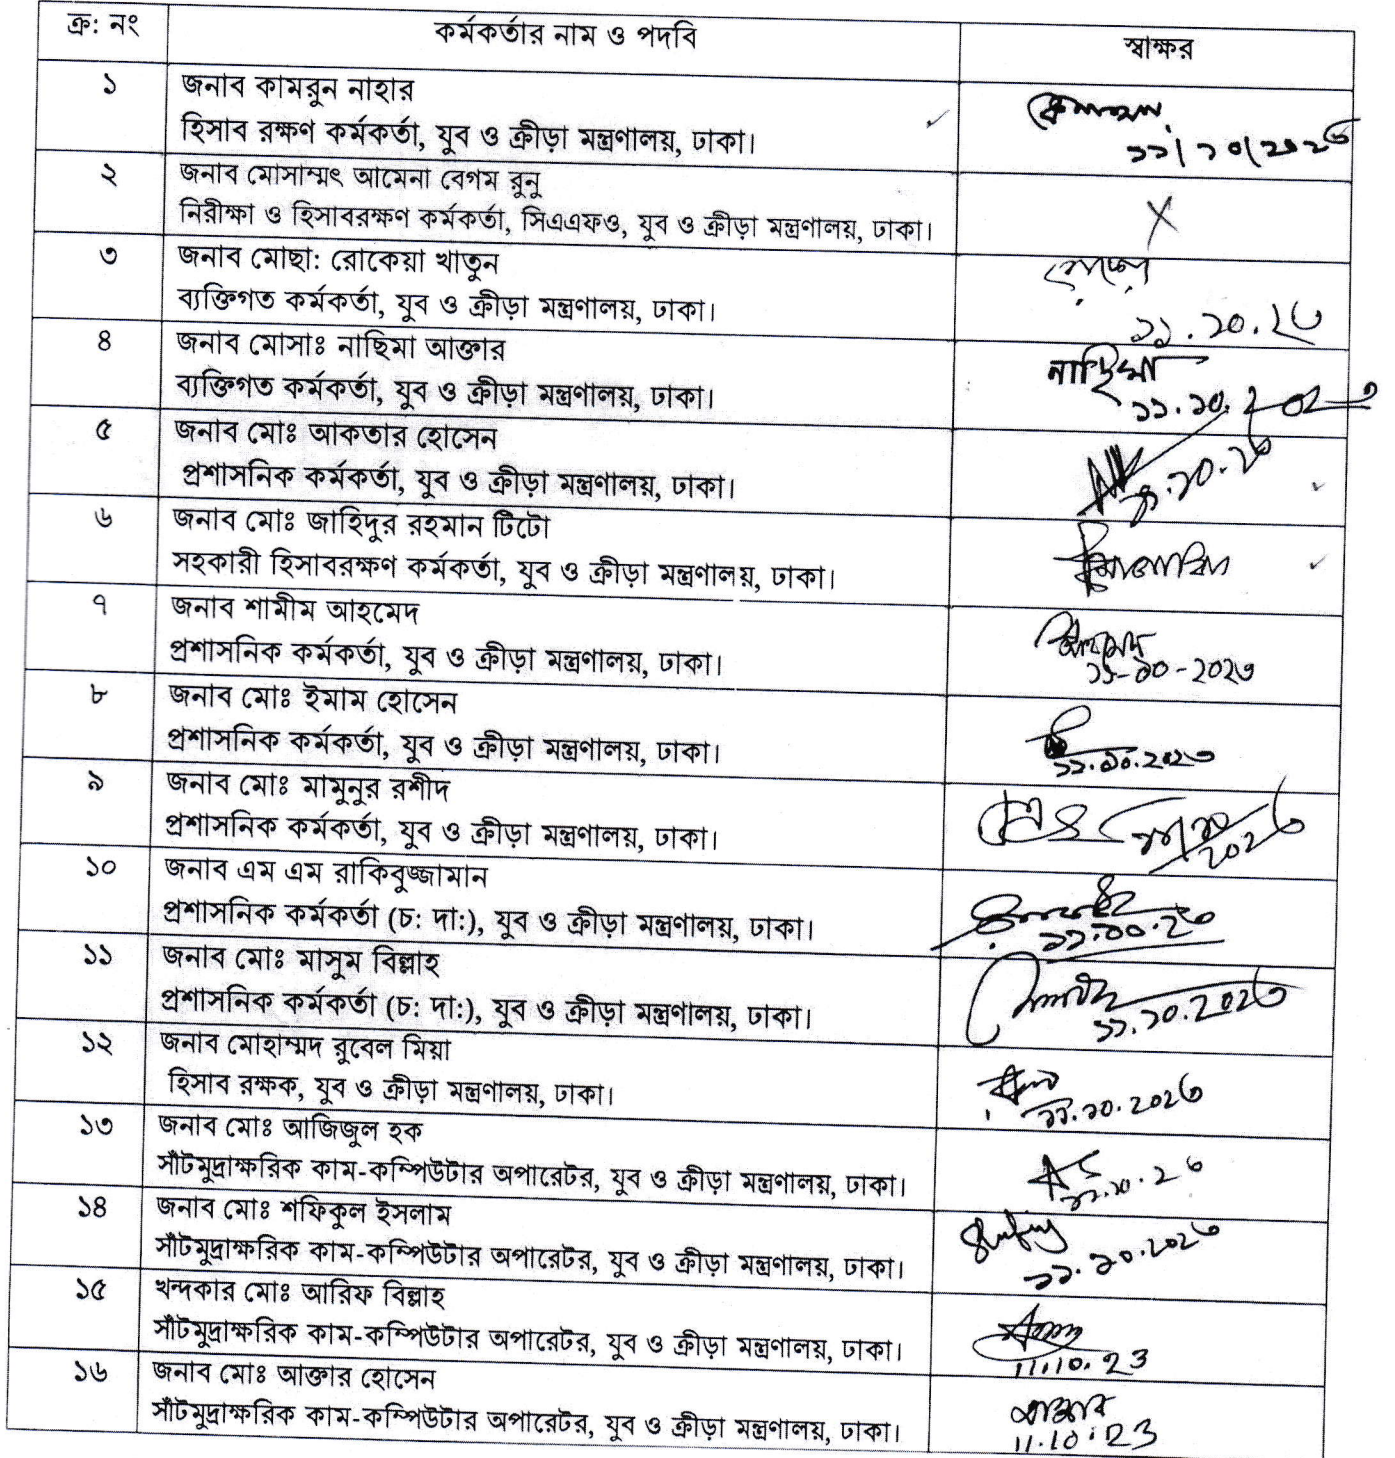 ক্র: নং কর্মকর্তার নাম ও পদবি স্বাক্ষর
১ জনাব কামরুন নাহার
হিসাব রক্ষণ কর্মকর্তা, যুব ও ক্রীড়া মন্ত্রণালয়, ঢাকা।
১১/১০/২০২৩
২ জনাব মোসাম্মৎ আমেনা বেগম রুনু
নিরীক্ষা ও হিসাবরক্ষণ কর্মকর্তা, সিএএফও, যুব ও ক্রীড়া মন্ত্রণালয়, ঢাকা।
X
৩ জনাব মোছা: রোকেয়া খাতুন
ব্যক্তিগত কর্মকর্তা, যুব ও ক্রীড়া মন্ত্রণালয়, ঢাকা।
১১.১০.২৩
৪ জনাব মোসাঃ নাছিমা আক্তার
নাছিমা
ব্যক্তিগত কর্মকর্তা, যুব ও ক্রীড়া মন্ত্রণালয়, ঢাকা।
১১.১০.২০২৩
৫ জনাব মোঃ আকতার হোসেন
প্রশাসনিক কর্মকর্তা, যুব ও ক্রীড়া মন্ত্রণালয়, ঢাকা।
১১.১০.২৩
৬ জনাব মোঃ জাহিদুর রহমান টিটো
সহকারী হিসাবরক্ষণ কর্মকর্তা, যুব ও ক্রীড়া মন্ত্রণালয়, ঢাকা।
৭ জনাব শামীম আহমেদ
প্রশাসনিক কর্মকর্তা, যুব ও ক্রীড়া মন্ত্রণালয়, ঢাকা।
১১-১০-২০২৩
৮ জনাব মোঃ ইমাম হোসেন
প্রশাসনিক কর্মকর্তা, যুব ও ক্রীড়া মন্ত্রণালয়, ঢাকা।
১১.১০.২০২৩
৯ জনাব মোঃ মামুনুর রশীদ
প্রশাসনিক কর্মকর্তা, যুব ও ক্রীড়া মন্ত্রণালয়, ঢাকা।
১১/১০
২০২৩
১০ জনাব এম এম রাকিবুজ্জামান
প্রশাসনিক কর্মকর্তা (চ: দা:), যুব ও ক্রীড়া মন্ত্রণালয়, ঢাকা।
১১.১০.২৩
১১ জনাব মোঃ মাসুম বিল্লাহ
প্রশাসনিক কর্মকর্তা (চ: দা:), যুব ও ক্রীড়া মন্ত্রণালয়, ঢাকা।
১১.১০.২০২৩
১২ জনাব মোহাম্মদ রুবেল মিয়া
হিসাব রক্ষক, যুব ও ক্রীড়া মন্ত্রণালয়, ঢাকা।
১১.১০.২০২৩
১৩ জনাব মোঃ আজিজুল হক
সাঁটমুদ্রাক্ষরিক কাম-কম্পিউটার অপারেটর, যুব ও ক্রীড়া মন্ত্রণালয়, ঢাকা।
১১.১০.২৩
১৪ জনাব মোঃ শফিকুল ইসলাম
সাঁটমুদ্রাক্ষরিক কাম-কম্পিউটার অপারেটর, যুব ও ক্রীড়া মন্ত্রণালয়, ঢাকা।
১১.১০.২০২৩
১৫ খন্দকার মোঃ আরিফ বিল্লাহ
সাঁটমুদ্রাক্ষরিক কাম-কম্পিউটার অপারেটর, যুব ও ক্রীড়া মন্ত্রণালয়, ঢাকা।
11.10.23
১৬ জনাব মোঃ আক্তার হোসেন
সাঁটমুদ্রাক্ষরিক কাম-কম্পিউটার অপারেটর, যুব ও ক্রীড়া মন্ত্রণালয়, ঢাকা।
11.10.23